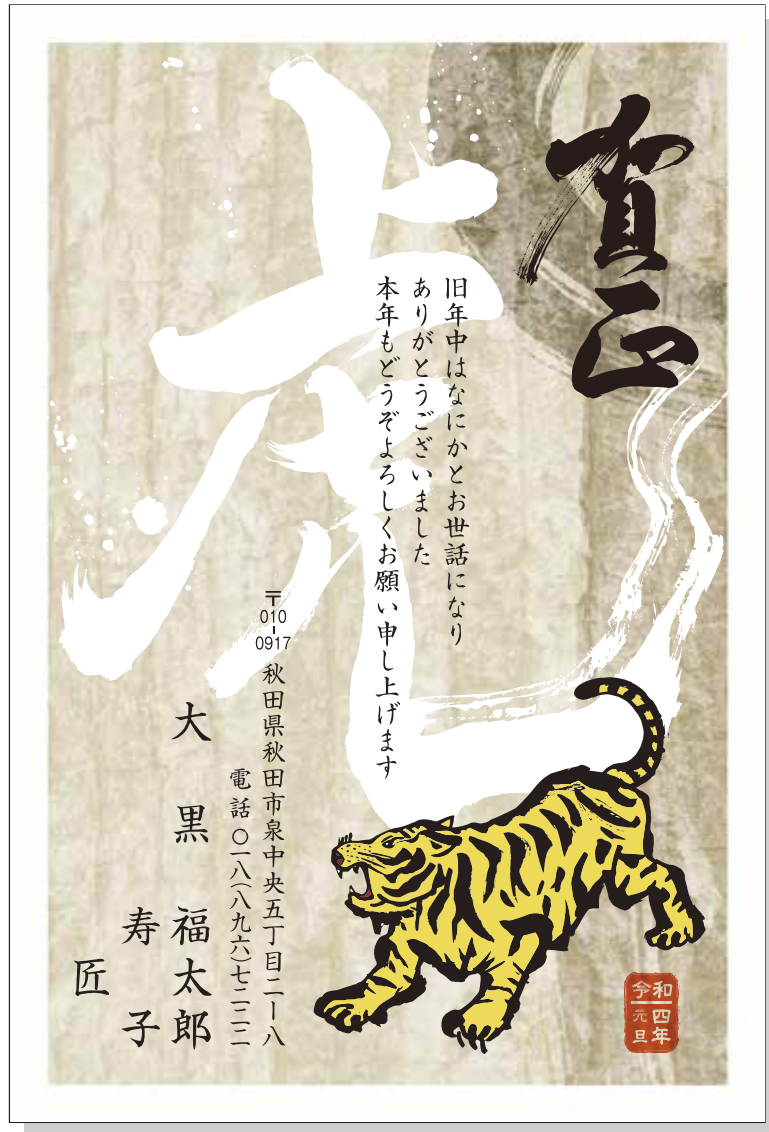 賀正
虎
旧年中はなにかとお世話になり
ありがとうございました
本年もどうぞよろしくお願い申し上げます
〒010-0917
秋田県秋田市泉中央五丁目二ー八
電話〇一八(八九六)七二二二
大黒 福太郎
寿子
匠
令和四年
元旦